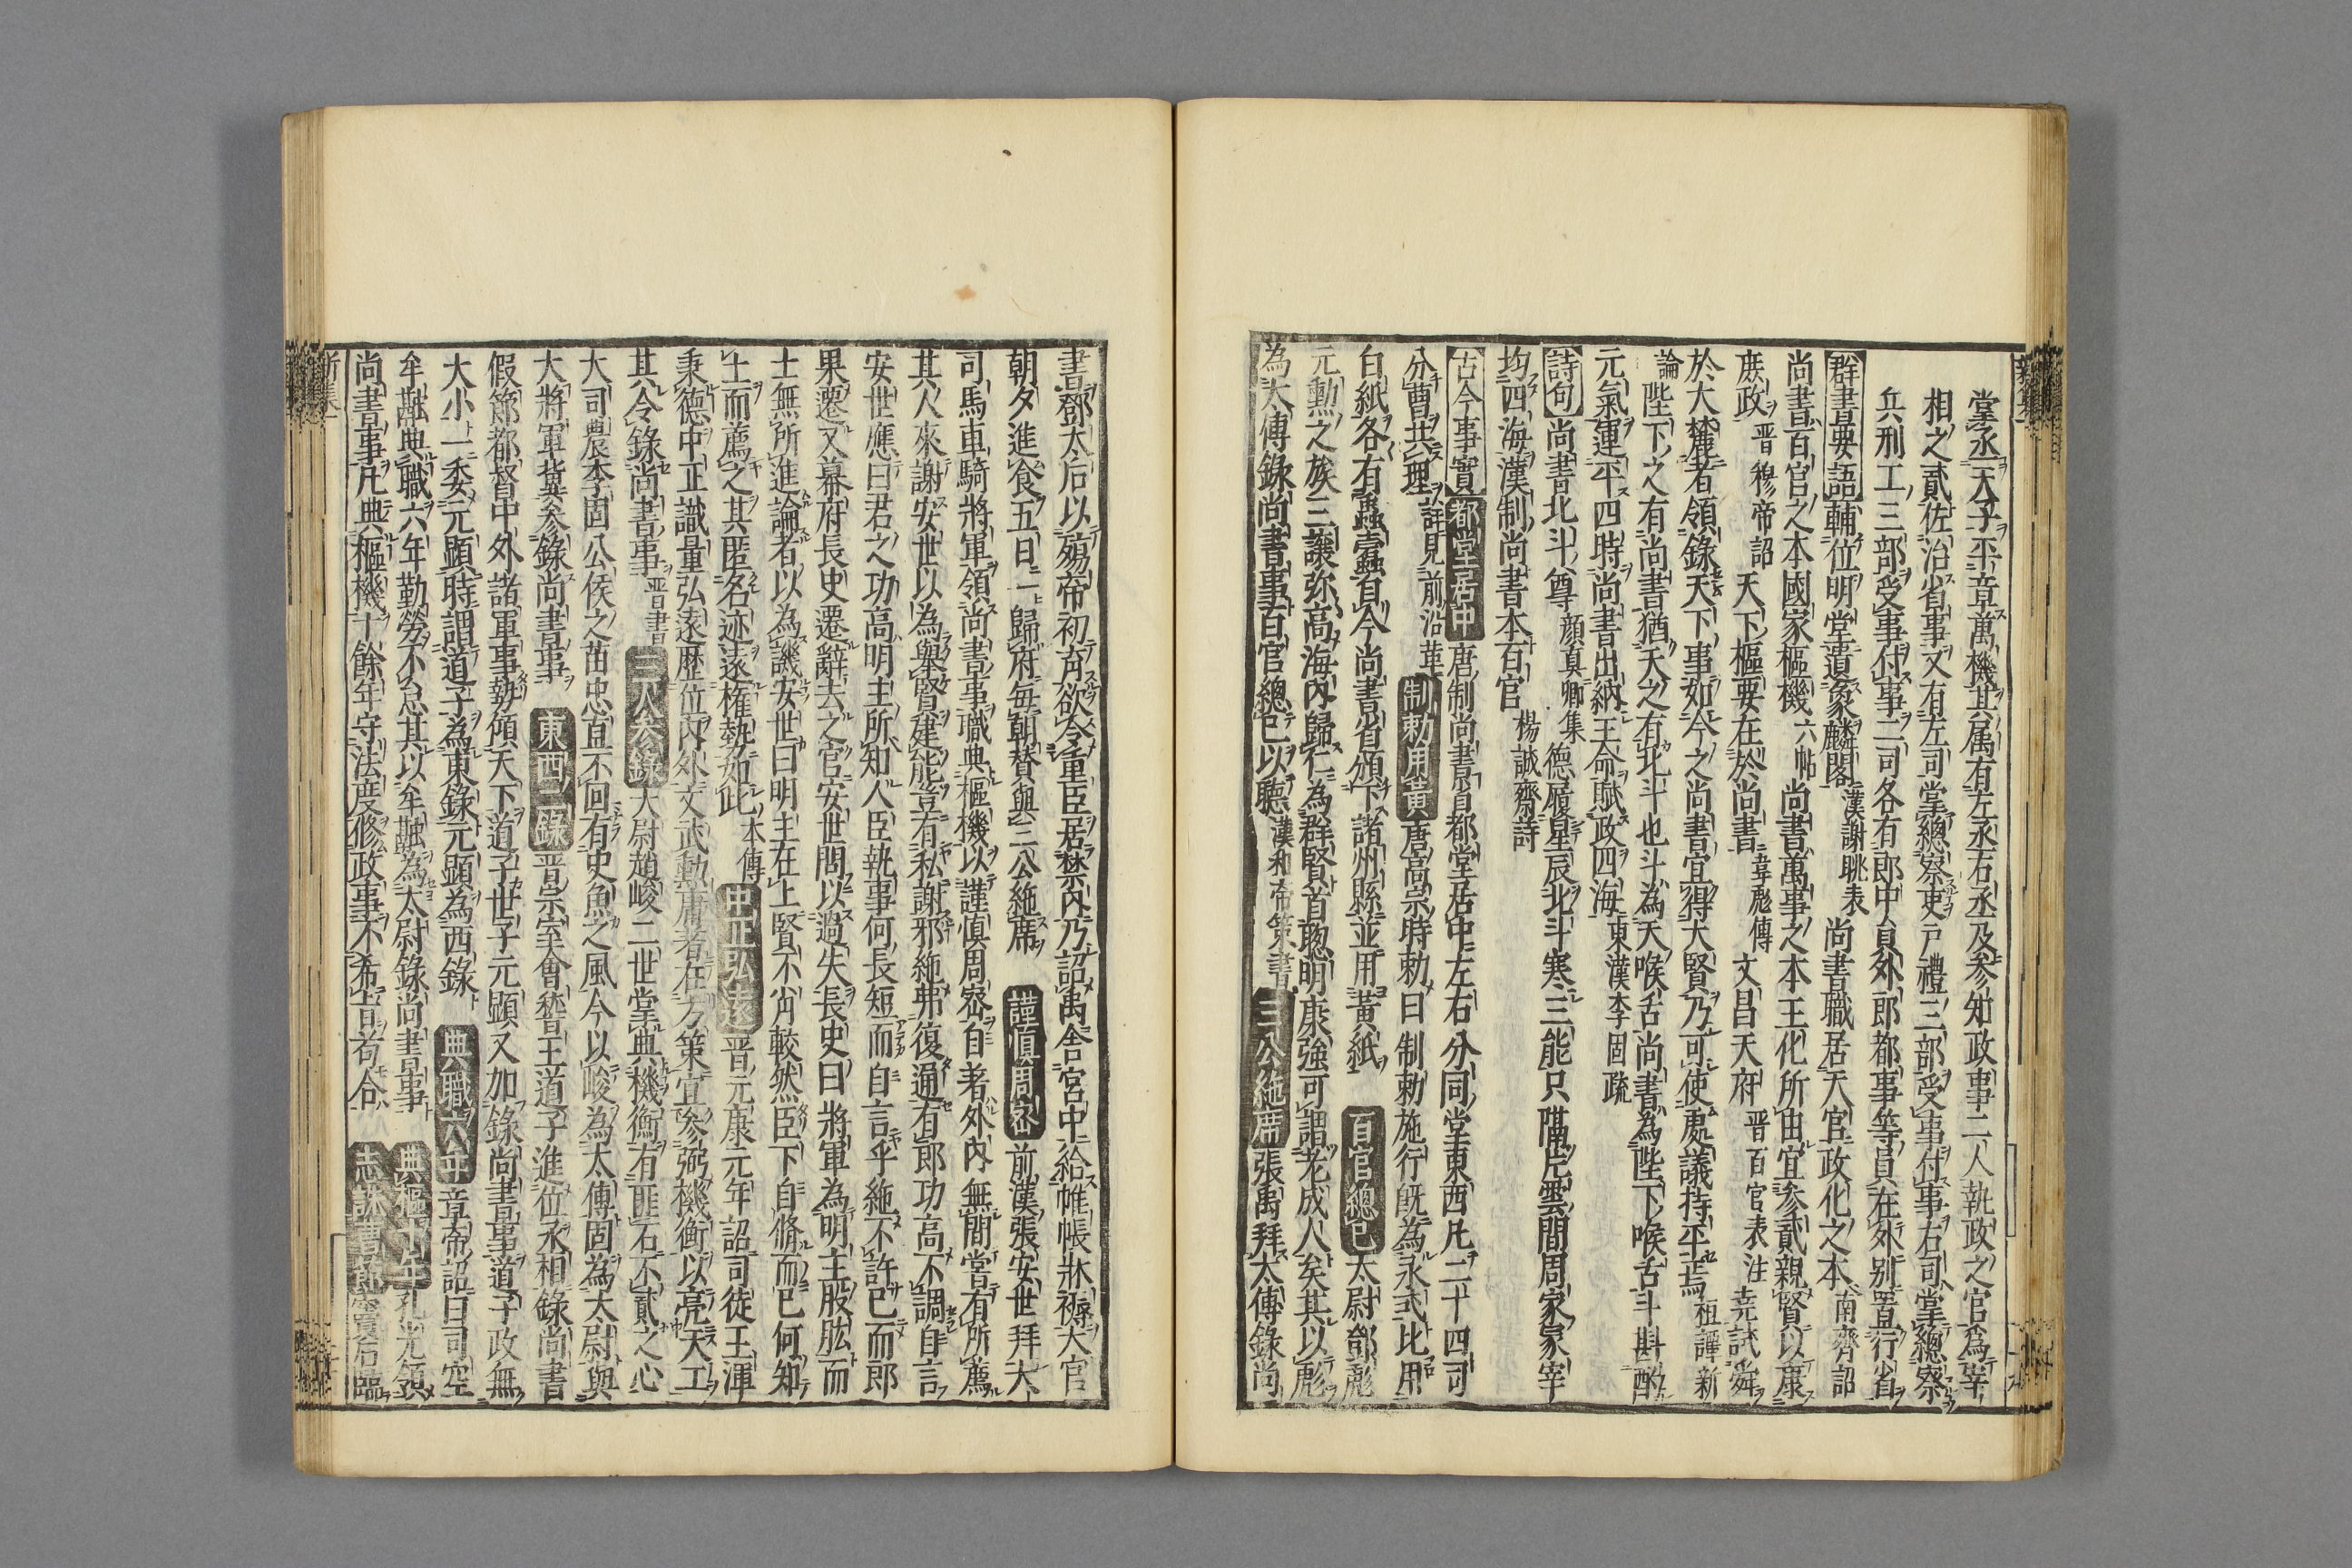 堂丞天子平章萬機其属有左丞右丞及参知政事二人執政之官為宰
相之貳佐治省事又有左司掌總察吏戸禮三部受事付事右司掌總察
兵刑工三部受事付事二司各有郎中員外郎都事等員在外别置行省
群書要語 輔位明堂遺象麟閣 漢謝眺表 尚書職居天官政化之本 南齊詔
尚書百官之本國家樞機 六帖 尚書萬事之本王化所由宜参貳親賢以康
庶政 晋穆帝詔 天下樞要在於尚書 韋彪傳 文昌天府 晋百官表注 堯試舜
於大麓者領錄天下事如今之尚書宜得大賢乃可使處議持平焉 桓譚新
論 陛下之有尚書猶天之有北斗也斗為天喉舌尚書為陛下喉舌斗斟酌
元氣運平四時尚書出納王命賦政四海 東漢李固疏
詩句 尚書北斗尊 顔真卿集 德履星辰北斗寒三能只隔片雲間周家冢宰
均四海漢制尚書本百官 楊誠齋詩
古今事實 都堂居中 唐制尚書省都堂居中左右分同堂東西凡二十四司
分曹共理 詳見前沿革 制勅用黄 唐高宗時勅曰制勅施行既為永式比用
白紙各有蟲蠹自今尚書省頒下諸州縣並用黄紙 百官總已 太尉鄧彪
元勲之族三讓弥高海内歸仁為群賢首聰明康強可謂老成人矣其以彪
為太傅錄尚書事百官總已以聽 漢和帝策書 三公絶席 張禹拜太傅錄尚
書鄧太后以殤帝初育欲令重臣居禁内乃詔禹舎宮中給帷帳牀褥太官
朝夕進食五日一歸府毎朝賛與三公絶席 謹慎周宻 前漢張安世拜大
司馬車騎將軍領尚書事職典樞機以謹慎周宻自著外内無間嘗有所薦
其人來謝安世以為舉賢達能豈有私謝邪絶弗復通有郎功高不調自言
安世應曰君之功高明主所知人臣執事何長短而自言乎絶不許已而郎
果遷又幕府長史遷辭去之官安世問以過失長史曰將軍為明主股肱而
士無所進論者以為譏安世曰明主在上賢不肖較然臣下自脩而已何知
士而薦之其匿名迹遠權勢如此 本傳 中正弘遠 晋元康元年詔司徒王渾
秉德中正識量弘遠歷位内外文武勲庸著在方策宜参弼機衡以亮天工
其令錄尚書事 晋書 三人参錄 大尉趙峻二世堂典機衡有匪石不貳之心
大司農李固公侯之苗忠直不回有史魚之風今以峻為太傅固為太尉與
大將軍冀参錄尚書事 東西二錄 晋宗室會稽王道子進位丞相錄尚書
假節都督中外諸軍事勢傾天下道子世子元顯又加錄尚書事道子政無
大小一委元顯時謂道子為東錄元顯為西錄 典職六年 章帝詔曰司空
牟融典職六年勤勞不怠其以牟融為太尉錄尚書事 典樞十年 孔光領
尚書事凡典樞機十餘年守法度修政事不希旨苟合 志誅曹節 竇后臨